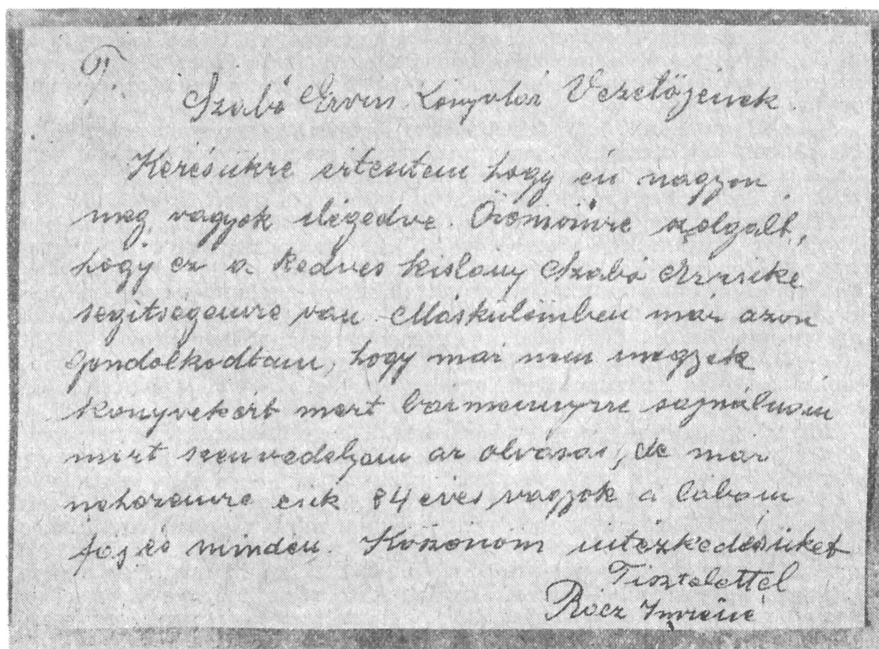 T.
Szabó Ervin Könyvtár Vezetőjeinek
Kérésükre értesitem hogy én nagyon
meg vagyok elégedve. Örömömre szolgált,
hogy ez a kedves kislány Szabó Erzsike
segitségemre van. Máskülömben már azon
gondolkodtam, hogy már nem megyek
könyvekért mert bármennyire sajnálnám
mert szenvedélyem az olvasás, de már
nehezemre esik 84 éves vagyok a lábam
fáj és minden. Köszönöm intézkedésüket
Tisztelettel
Rácz Imréné